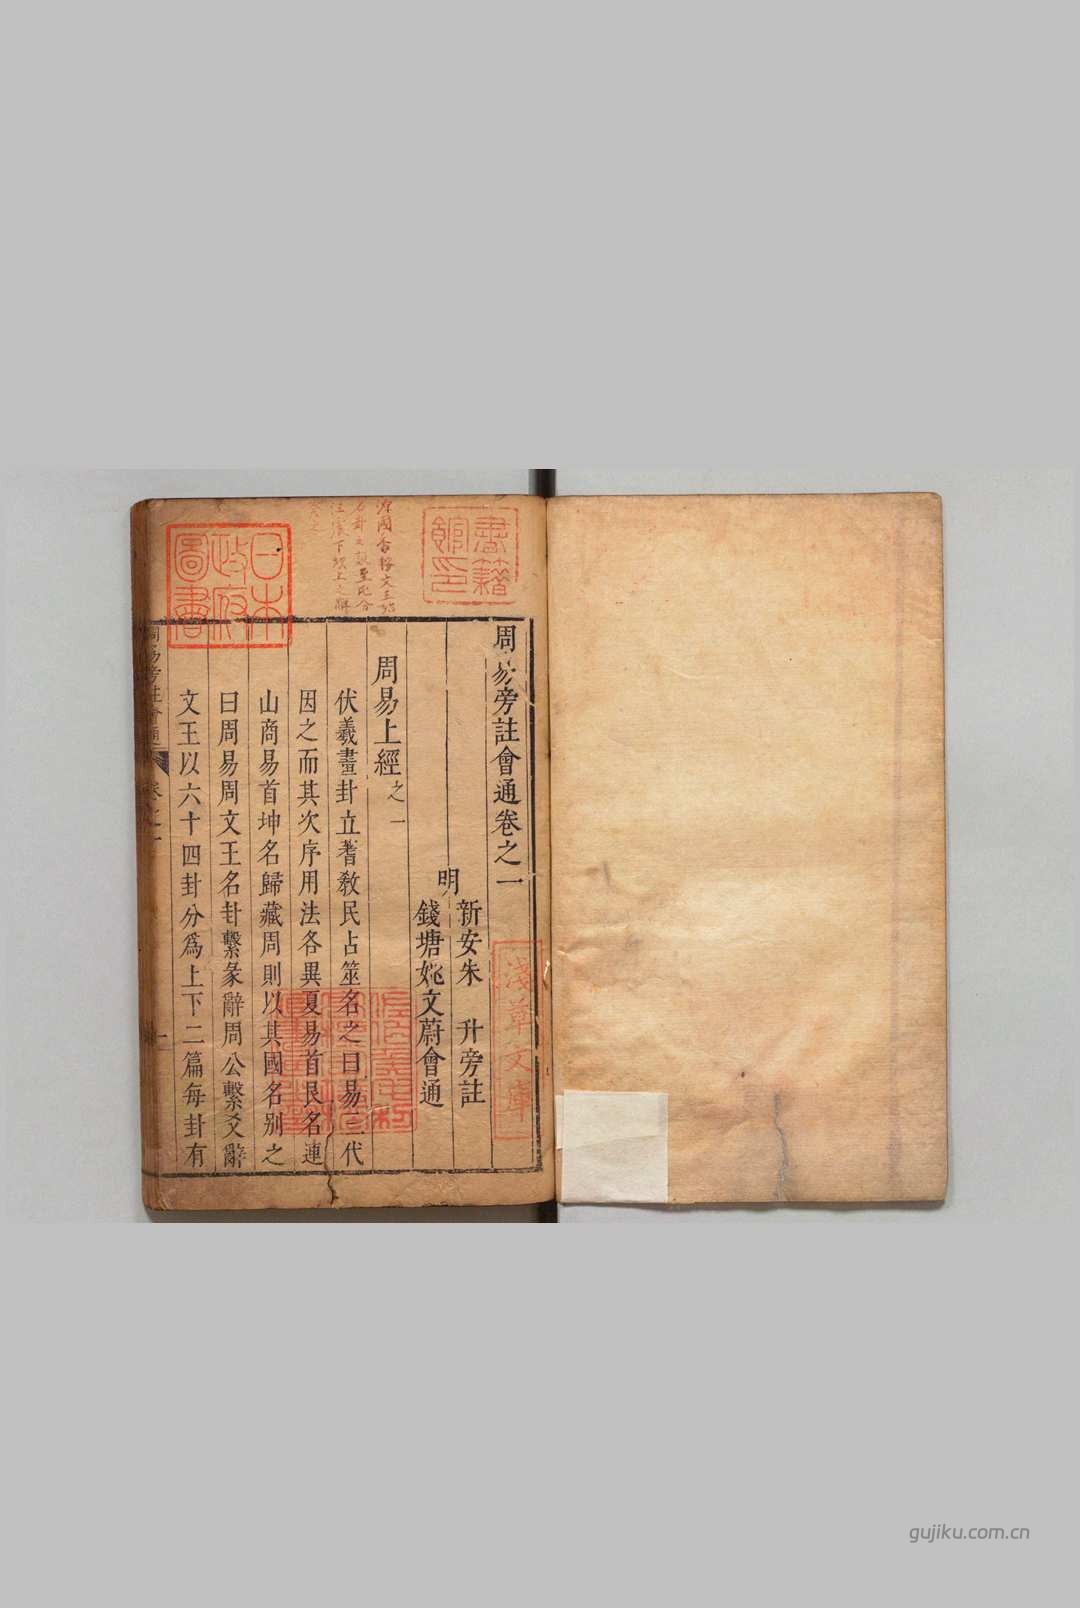 周易旁註會通卷之一
明
新安朱 升旁註
錢塘姚文蔚會通
周易上經之一
伏羲畫卦立蓍教民占筮名之曰易三代
因之而其次序用法各異夏易首艮名連
山商易首坤名歸藏周則以其國名别之
曰周易周文王名卦繫彖辭周公繫爻辭
文王以六十四卦分為上下二篇每卦有
周易旁註會通
卷之一
一
書籍
館印
日本
政府
圖書
淺草文庫
gujiku.com.cn